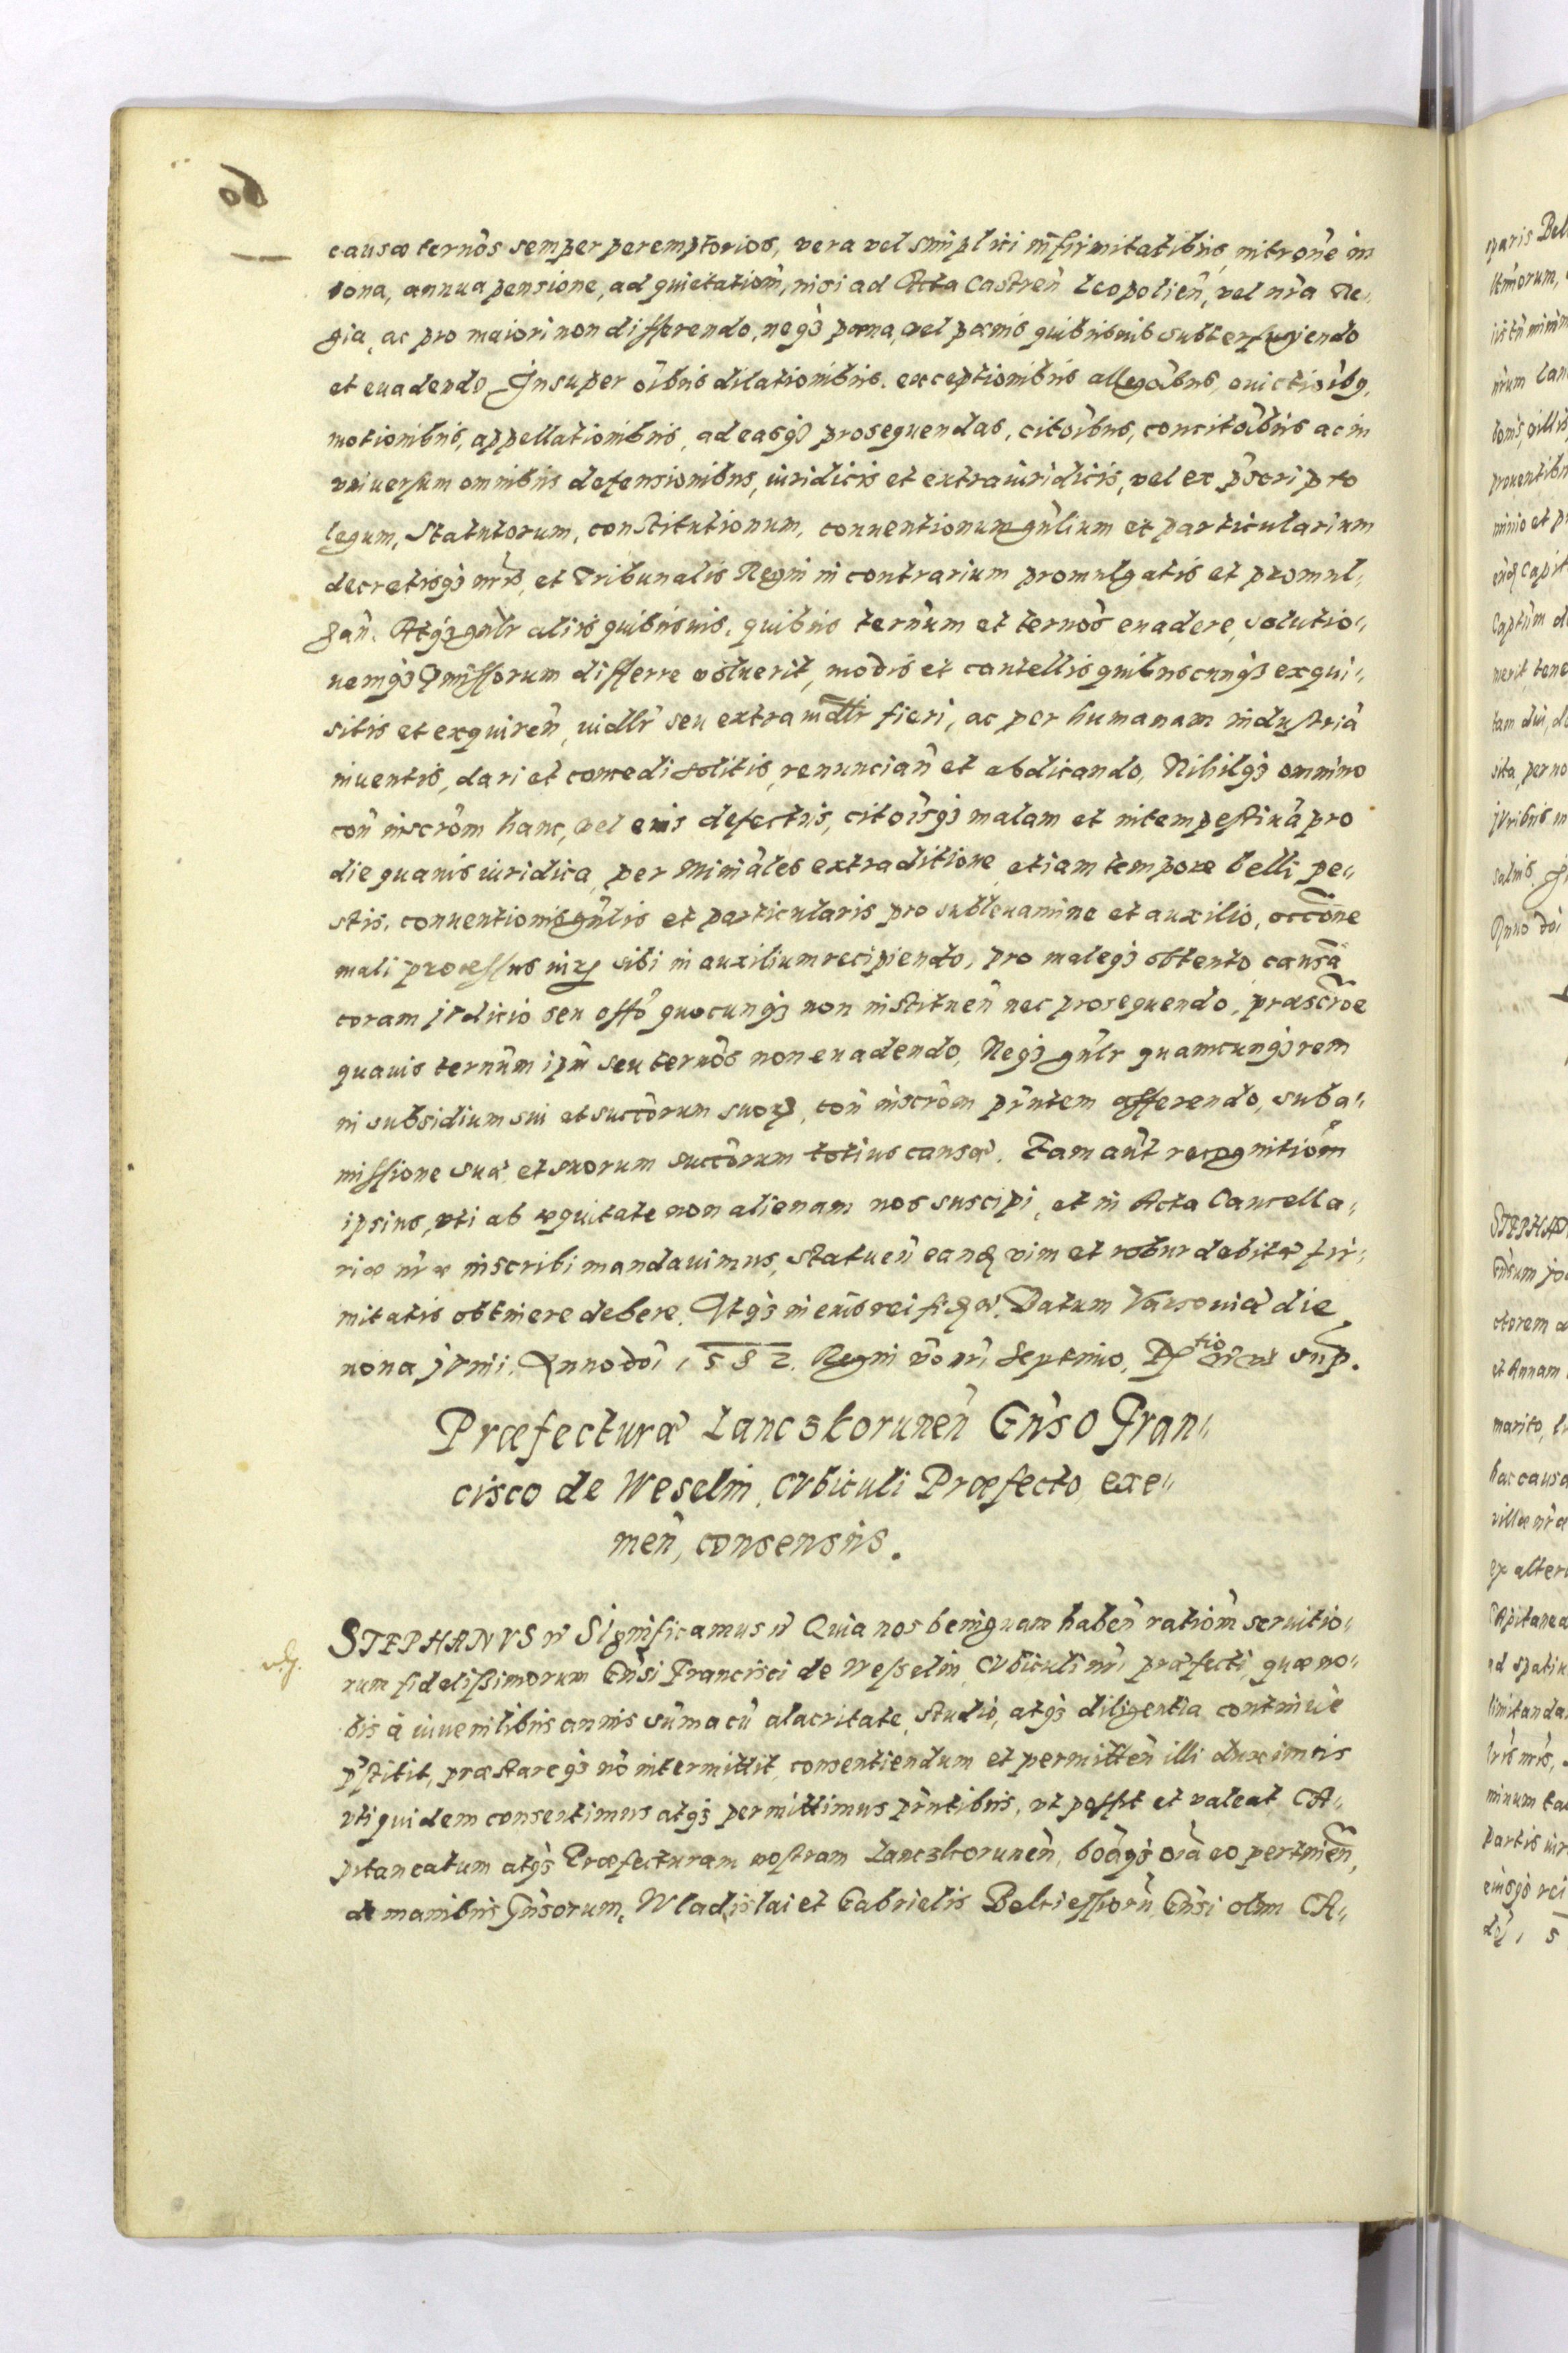 causæ ternõs semper peremptorios, vera vel simplici infirmitatibus, intrõne in
bona, annua pensione, ad quietationẽ, nisi ad Acta Castreñ Leopolieñ, vel nr̃a Re„
gia, ac pro maiori non differendo, neqȝ pœna, vel pœnis quibusuis subterfugiendo
et euadendo. Insuper oĩbus dilationibus, exceptionibus allegõibus, euictioĩbꝫ,
motionibus, appellationibus, ad easqȝ prosequendas, citõibus, concitõibus ac in
vniuersum omnibus defensionibus, iuridicis et extraiuridicis, vel ex pscripto
legum, Statutorum, constitutionum, conuentionum gñlium et particularium
decretisqȝ nr̃is, et Tribunalis Regni in contrarium promulgatis et promul„
gañ. Atqȝ gñlr aliis quibusuis, quibus terñum et ternõs euadere, solutio„
nemqȝ pmissorum differre voluerit, modis et cautellis quibuscunqȝ exqui„
sitis et exquireñ, iudlr seu extraiudlr fieri, ac per humanam industriã
inuentis, dari et concedi solitis, renunciañ et abdicando, Nihilqȝ omnino
coñ inscrõm hanc, vel eius defectus, citõisqȝ malam et intempestiuã pro
die quauis iuridica, per Miniãles extraditione etiam tempore belli pe„
stis, conuentionis gñlis et particularis pro subleuamine et auxilio, occõne
mali processus iurꝫ sibi in auxilium recipiendo, pro maleqȝ obtento causã
coram jvdicio seu offõ quocunqȝ non instítueñ nec prosequendo, præscrõe
quauis terñum ipm̃ seu ternõs non euadendo, Neqȝ gñlr quamcunqȝ rem
in subsidium sui et succõrum suorꝫ, coñ inscrõm pñtem afferendo, sub a„
missione suæ et suorum succõrum totius causæ. Eam aũt recognitiõm
ipsius, vti ab æquitate non alienam nos suscipi, et in Acta Cancella„
riæ nr̃æ inscribi mandauimus, statueñ eandꝫ vim et robur debitæ fir„
mitatis obtinere debere. Atqȝ in eius rei fidẽ. Datum Varsouiæ die
nona jvnii. Anno dõi 1582. Regni võ nr̃i Septimo,
Præfecturæ Lanczkoruneñ Gñso Fran„
cisco de Weselin, Cvbiculi Præfecto, exe„
meñ, consensus.
STEPHANVS  Significamus  Quia nos benignam habeñ ratiõm seruitio„
rum fidelissimorum Gñsi Francisci de Wesselin, Cvbiculi nr̃i præfecti, quæ no„
bis à iuuenilibus annis sũma cũ alacritate, studio, atqȝ diligentia continuè
p̃stitit, præstareqȝ nõ intermittit, consentiendum et permitteñ illi duximus
vti quidem consentimus atqȝ permittimus pñtibus, vt possit et valeat CA„
pitaneatum atqȝ Præfecturam nostram Lanczkoruneñ, bonãqȝ oĩa eo pertineñ,
de manibus Gñsorum, Wladislai et Gabrielis Bekiessiorũ, Gñsi olim CA„